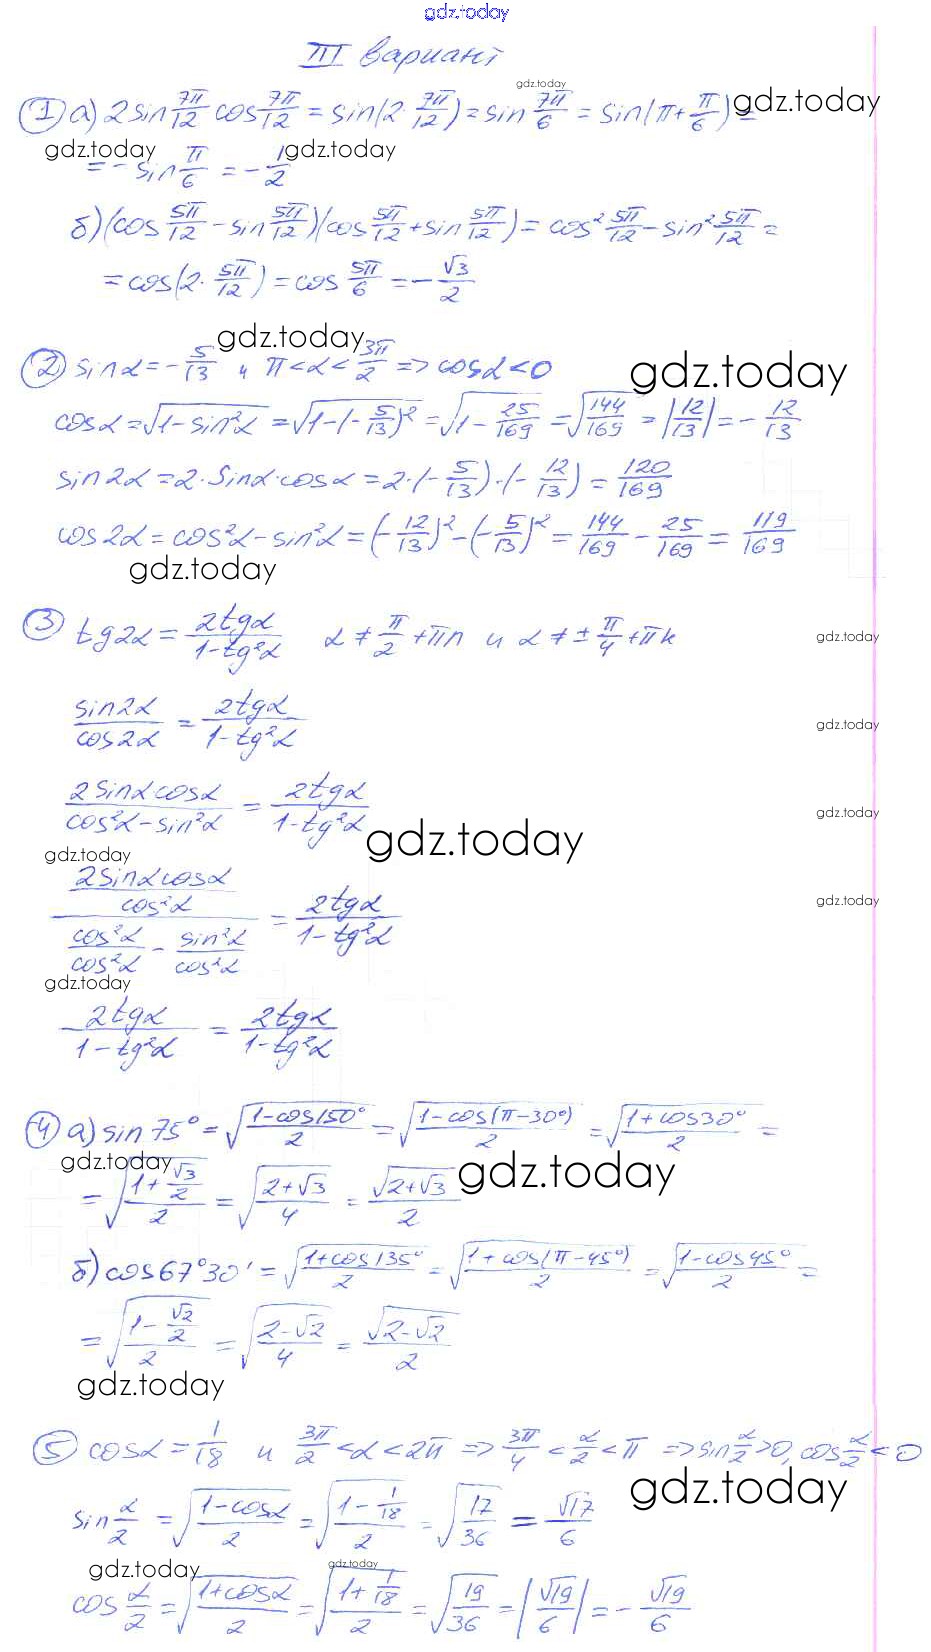 gdz.today
III вариант
gdz.today
① а) 2sin 7π/12 cos 7π/12 = sin(2· 7π/12) = sin 7π/6 = sin(π + π/6) =
gdz.today
gdz.today gdz.today
= - sin π/6 = - 1/2
б) (cos 5π/12 - sin 5π/12)(cos 5π/12 + sin 5π/12) = cos² 5π/12 - sin² 5π/12 =
= cos(2· 5π/12) = cos 5π/6 = - √3/2
gdz.today
② sinα = - 5/13 и π < α < 3π/2 => cosα < 0
gdz.today
cosα = √(1 - sin²α) = √(1 - (- 5/13)²) = √(1 - 25/169) = √(144/169) = |12/13| = - 12/13
sin2α = 2·sinα·cosα = 2·(- 5/13)·(- 12/13) = 120/169
cos2α = cos²α - sin²α = (- 12/13)² - (- 5/13)² = 144/169 - 25/169 = 119/169
gdz.today
③ tg2α = 2tgα/(1 - tg²α) α ≠ π/2 + πn и α ≠ ± π/4 + πk
gdz.today
sin2α/cos2α = 2tgα/(1 - tg²α)
gdz.today
2sinαcosα/(cos²α - sin²α) = 2tgα/(1 - tg²α)
gdz.today
gdz.today
gdz.today
(2sinαcosα/cos²α)/(cos²α/cos²α - sin²α/cos²α) = 2tgα/(1 - tg²α)
gdz.today
gdz.today
2tgα/(1 - tg²α) = 2tgα/(1 - tg²α)
④ а) sin75° = √((1 - cos150°)/2) = √((1 - cos(π - 30°))/2) = √((1 + cos30°)/2) =
gdz.today
gdz.today
= √((1 + √3/2)/2) = √((2 + √3)/4) = √(2 + √3)/2
б) cos67°30' = √((1 + cos135°)/2) = √((1 + cos(π - 45°))/2) = √((1 - cos45°)/2) =
= √((1 - √2/2)/2) = √((2 - √2)/4) = √(2 - √2)/2
gdz.today
⑤ cosα = 1/18 и 3π/2 < α < 2π => 3π/4 < α/2 < π => sin α/2 > 0, cos α/2 < 0
gdz.today
sin α/2 = √((1 - cosα)/2) = √((1 - 1/18)/2) = √(17/36) = √17/6
gdz.today
gdz.today
cos α/2 = √((1 + cosα)/2) = √((1 + 1/18)/2) = √(19/36) = |√19/6| = - √19/6